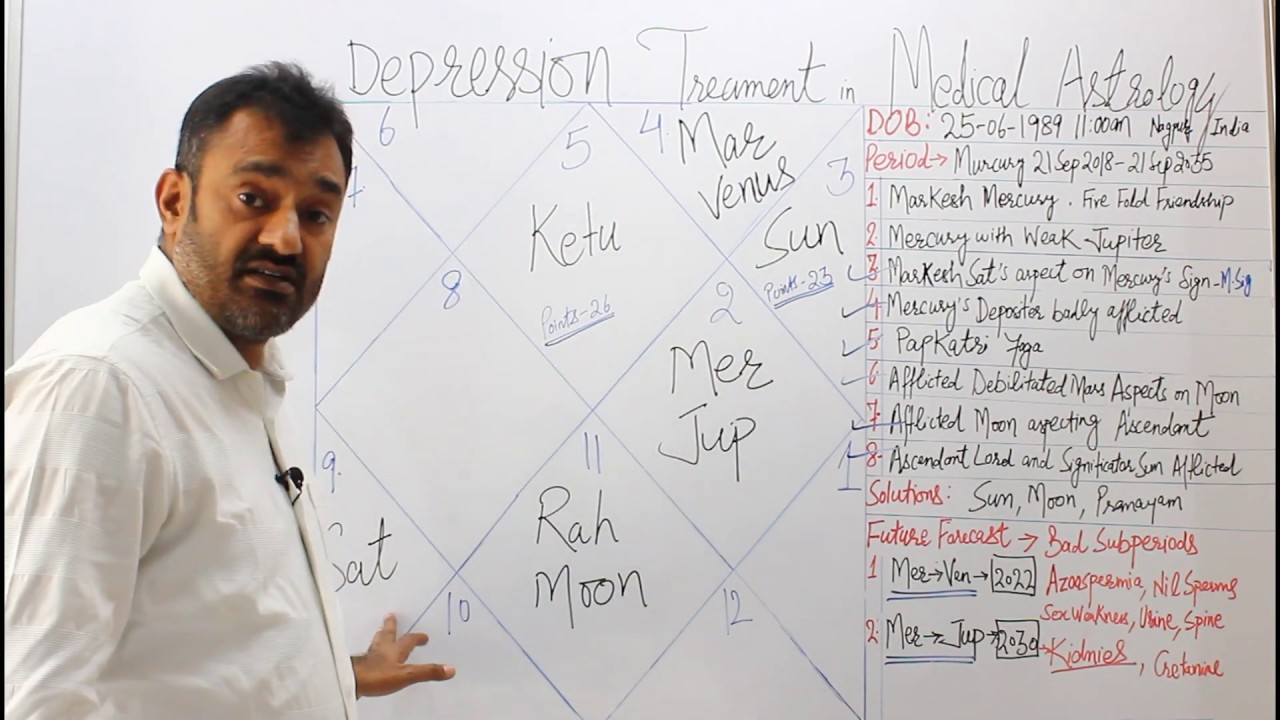 Depression Treament in Medical Astrology
6
5
4
Mar
Venus
3
7
Ketu
Sun
Points-23
8
Points-26
2
Mer
Jup
11
9
1
Rah
Moon
Sat
10
12
DOB: 25-06-1989 11:00am Nagpur India
Period→ Murcury 21 Sep 2018 - 21 Sep 2035
1. Markesh Mercury. Five Fold Friendship
2 Mercury with Weak Jupiter
3 Markesh Sat's aspect on Mercury's Sign - M.Sig
4 Mercury's Depositer badly afflicted
5 PapKatri Yoga
6 Afflicted Debilitated Mars Aspects on Moon
7 Afflicted Moon aspecting Ascendant
8. Ascendant Lord and Significator Sun Afflicted
Solutions: Sun, Moon, Pranayam
Future Forecast → Bad Subperiods
1 Mer→Ven→ 2022 Azoospermia, Nil Sperms
Sex Weakness, Urine, Spine
2. Mer→Jup→ 2030 → Kidnies, Cretanine